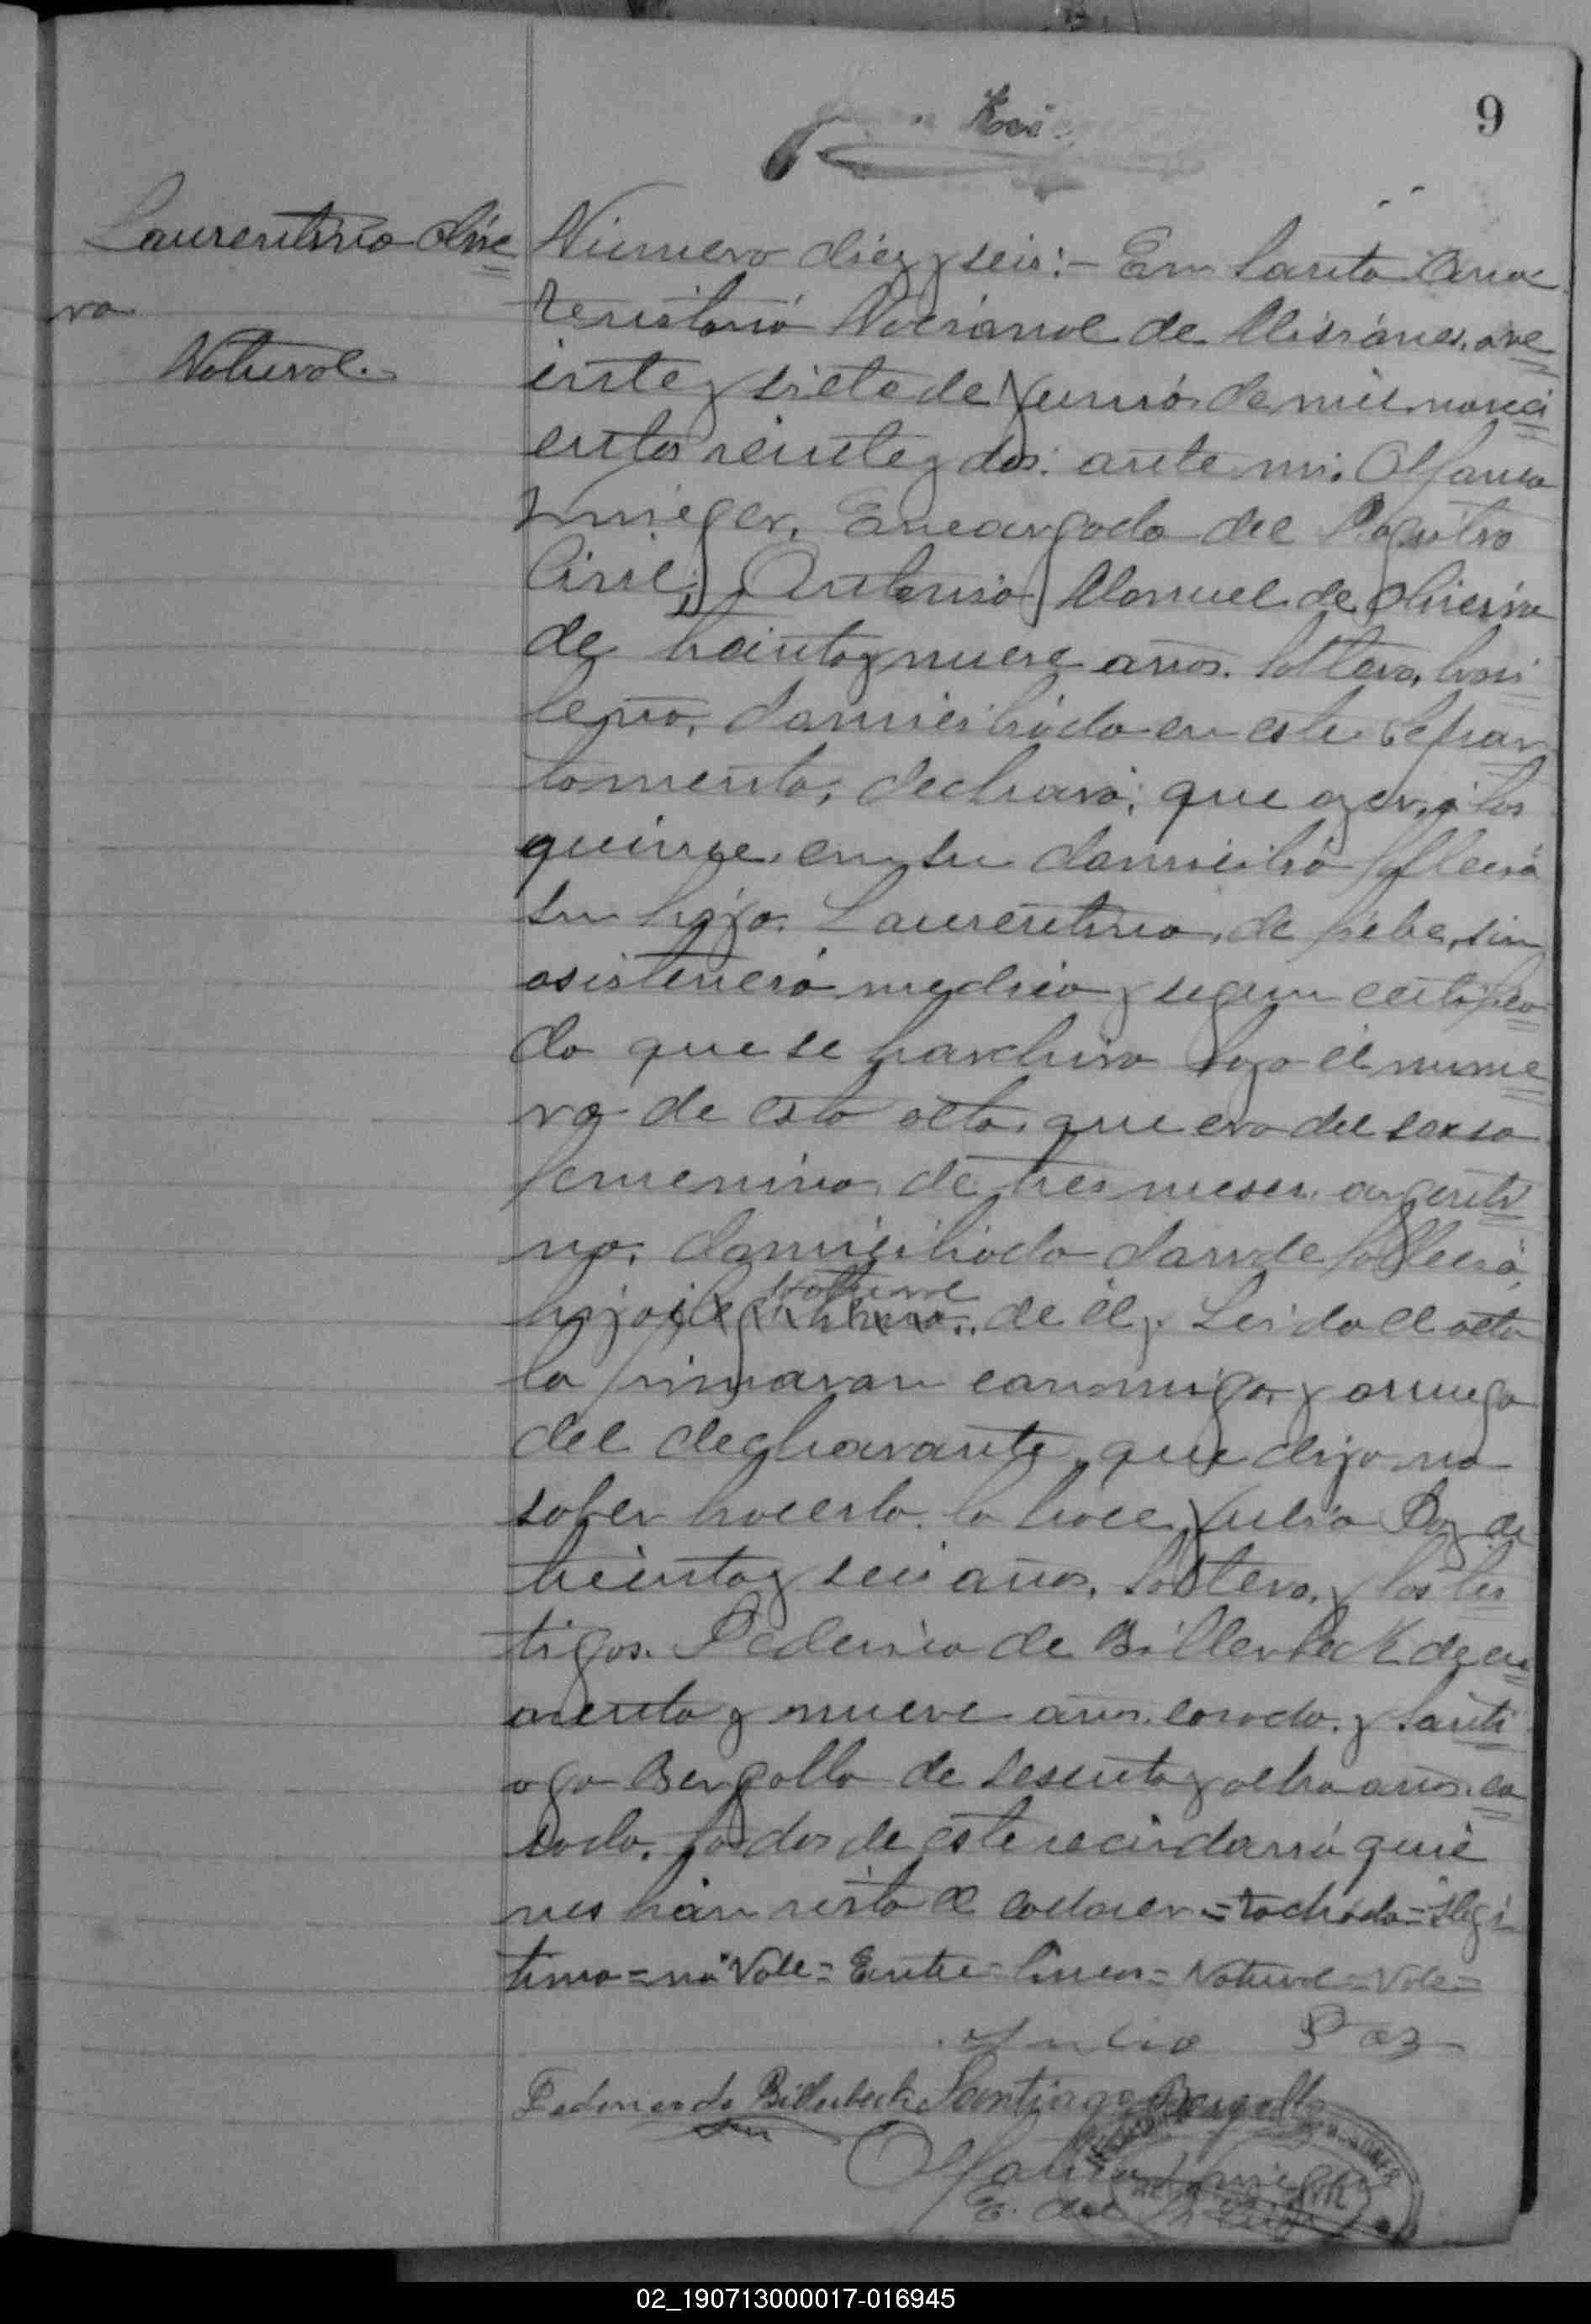 9
Laurentino Olive
ra
Natural.
Número diez y seis:- En Santa Ana
Territorio Nacional de Misiones, a ve
inte y siete de Junio de mil noveci
entos veinte y dos: ante mi. Alfonso
Encargado del Registro
Civil, Antonio Manuel de Oliveira
de treinta y nueve años. soltero, brasi
leño, domiciliado en este Depar
tamento, declaró; que ayer, a las
quince, en su domicilio falleció
su hijo. Laurentino, de fiebre, sin
asistencia medica y segun certifica
do que se harchiva bajo el nume
ro de esta acta, que era del sexso
femenino, de tres meses. argenti
no, domiciliado donde falleció,
natural
hijo ilegitimo.. de él, Leida el acta
la firmaron conmigo, y a ruego
del declarante, que dijo no
saber hacerlo. lo hace Julio Paz de
treinta y seis años, soltero, y los tes
tigos. Federico de Billerbeck de cu
arenta y nueve años. casado. y Santi
ago Bergallo de sesenta y ocho años. ca
sado. todos de este vecindario quie
nes hán visto el cadaver.=Tachado=ilegi
timo=no Vale=Entre=lineas=Natural=Vale=
Julio Paz
Federico de Billerbeck Santiago Bergallo
E. del
02_190713000017-016945